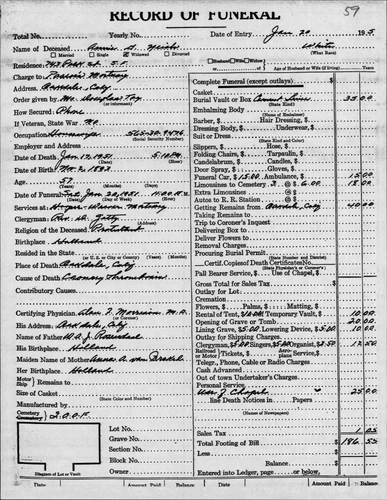 RECORD OF FUNERAL
59
Total No. Yearly No. Date of Entry Jan. 20 195
Name of Deceased White
Married Single Widowed Divorced Husband Widow (What Race)
Residence Age of Husband or Wife (if living) Years
Charge to Mortuary
Address
Order given by Mr. Douglas Foy
How Secured Phone
If Veteran, State War No
Occupation Housewife 565-30-9494
(Social Security Number)
Employer and Address
Date of Death Jan. 17, 1951 5:10 PM
Date of Birth Nov. 2, 1893
Age 57
Years Months Days
Date of Funeral Sat. Jan. 20, 1951 11:00 A.M.
Services at Mortuary
Clergyman Rev. W.
Religion of the Deceased Protestant
Birthplace Holland
Resided in the State
(Years or Months)
Place of Death Calif
Cause of Death Coronary Thrombosis
Contributory Causes
Certifying Physician Alan T. Morrison M.D.
(or Coroner)
His Address Calif.
Name of Father
His Birthplace Holland
Maiden Name of Mother Anna
Her Birthplace Holland
Motor Ship Remains to
Size of Casket
(State Color and Number)
Manufactured by
Cemetery Crematory I.O.O.F.
Lot No.
Grave No.
Section No.
Block No.
Owner
Diagram of Lot or Vault
Complete Funeral (except outlays)
Casket
Burial Vault or Box Cement Liner 35 00
(State Kind)
Embalming Body
(Name of Embalmer)
Barber, $ Hair Dressing, $
Dressing Body, $ Underwear, $
Suit or Dress
Slippers, $ Hose, $
Folding Chairs, $ Tarpaulin, $
Candelabrum, $ Candles, $
Door Spray, $ Gloves, $
Funeral Car, $ 15.00 Ambulance, $ 15 00
Limousines to Cemetery 3 @ $ 6.00 18 00
Extra Limousines @ $
Autos to R. R. Station @ $
Getting Remains from 40 00
Taking Remains to
Trip to Coroner's Inquest
Delivering Box to
Deliver Flowers
Removal Charges
Procuring Burial Permit
(State Number and District)
Certif. Copies of Death Certificates No.
(State Physician's or Coroner's)
Pall Bearer Service @ $ Use of Chapel, $
Gross Total for Sales Tax $
Outlay for Lot
Cremation
Flowers, $ Palms, $ Matting, $
Rental of Tent, $ 10.00 Temporary Vault, $ 10 00
Opening of Grave or Tomb 20 00
Lining Grave, $ 5.00 Lowering Device, $ 5.00 10 00
Outlay for Shipping Charges
Clergyman, $ Singers, $ Organist, $ 12 50
Railroad Motor Tickets, $ Aeroplane Service, $
Teleg., Phone, Cable or Radio Charges
Cash Advanced
Out of town Undertaker's Charges
Personal Service
Use of Chapel 25 00
line Death Notices in Papers
(Name of Newspapers)
Sales Tax 1 05
Total Footing of Bill 186 55
Less
Balance
Entered into Ledger, page or below,
Date Amount Paid Balance Date Amount Paid Balance